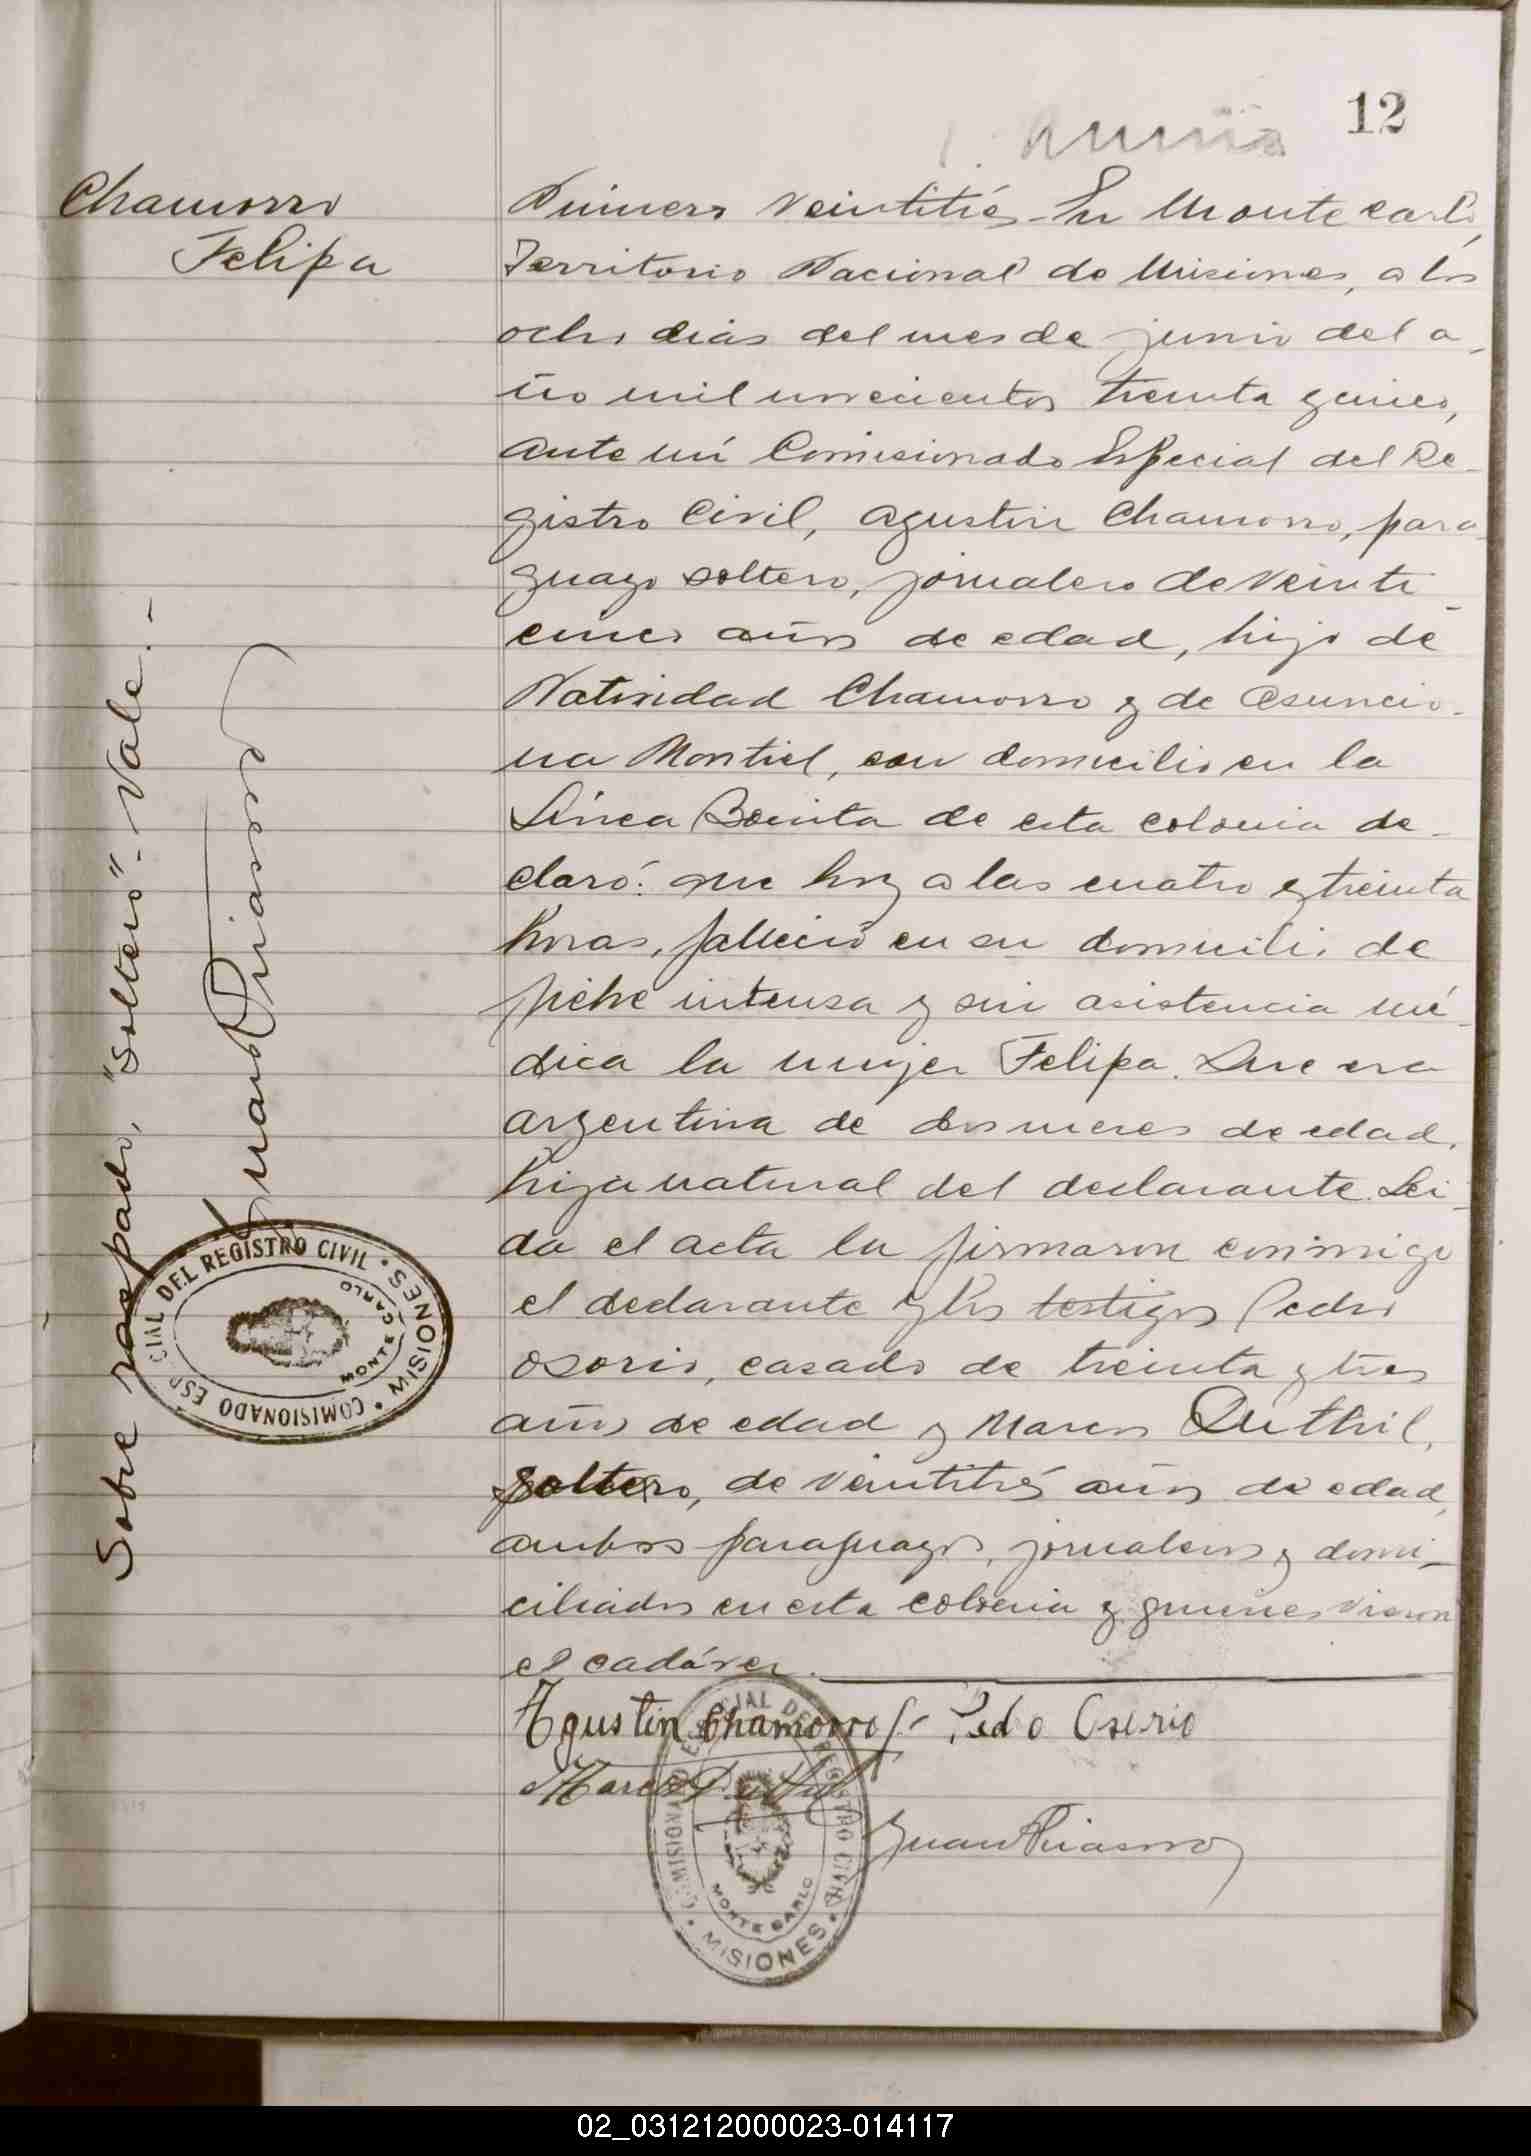 12
Chamorro
Felipa
Número veintitrés. En Monte Carlo,
Territorio Nacional de Misiones, a los
ocho dias del mes de junio del a-
ño mil novecientos treinta y cinco,
ante mí Comisionado Especial del Re-
gistro Civil, Agustin Chamorro, para-
guayo soltero, jornalero de veinti-
cinco años de edad, hijo de
Natividad Chamorro y de Asuncio-
na Montiel, con domicilio en la
Línea Bonita de esta colonia de-
claró: que hoy a las cuatro y treinta
horas, falleció en su domicilio de
fiebre intensa y sin asistencia mé-
dica la mujer Felipa. Que era
argentina de dos meses de edad,
hija natural del declarante. Lei-
da el acta la firmaron conmigo
el declarante y los testigos Pedro
Osorio, casado de treinta y tres
años de edad y Marcos Duthil,
soltero, de veintitrés años de edad,
ambos paraguayos, jornaleros y domi-
ciliados en esta colonia y quienes vieron
el cadáver.
Agustin Chamorro Pedro Osorio
Marcos Duthil
Juan
Sobre raspado, "soltero" - Vale. -
Juan
COMISIONADO ESPECIAL DEL REGISTRO CIVIL • MISIONES •
MONTE CARLO
COMISIONADO ESPECIAL DEL REGISTRO CIVIL • MISIONES •
MONTE CARLO
02_031212000023-014117